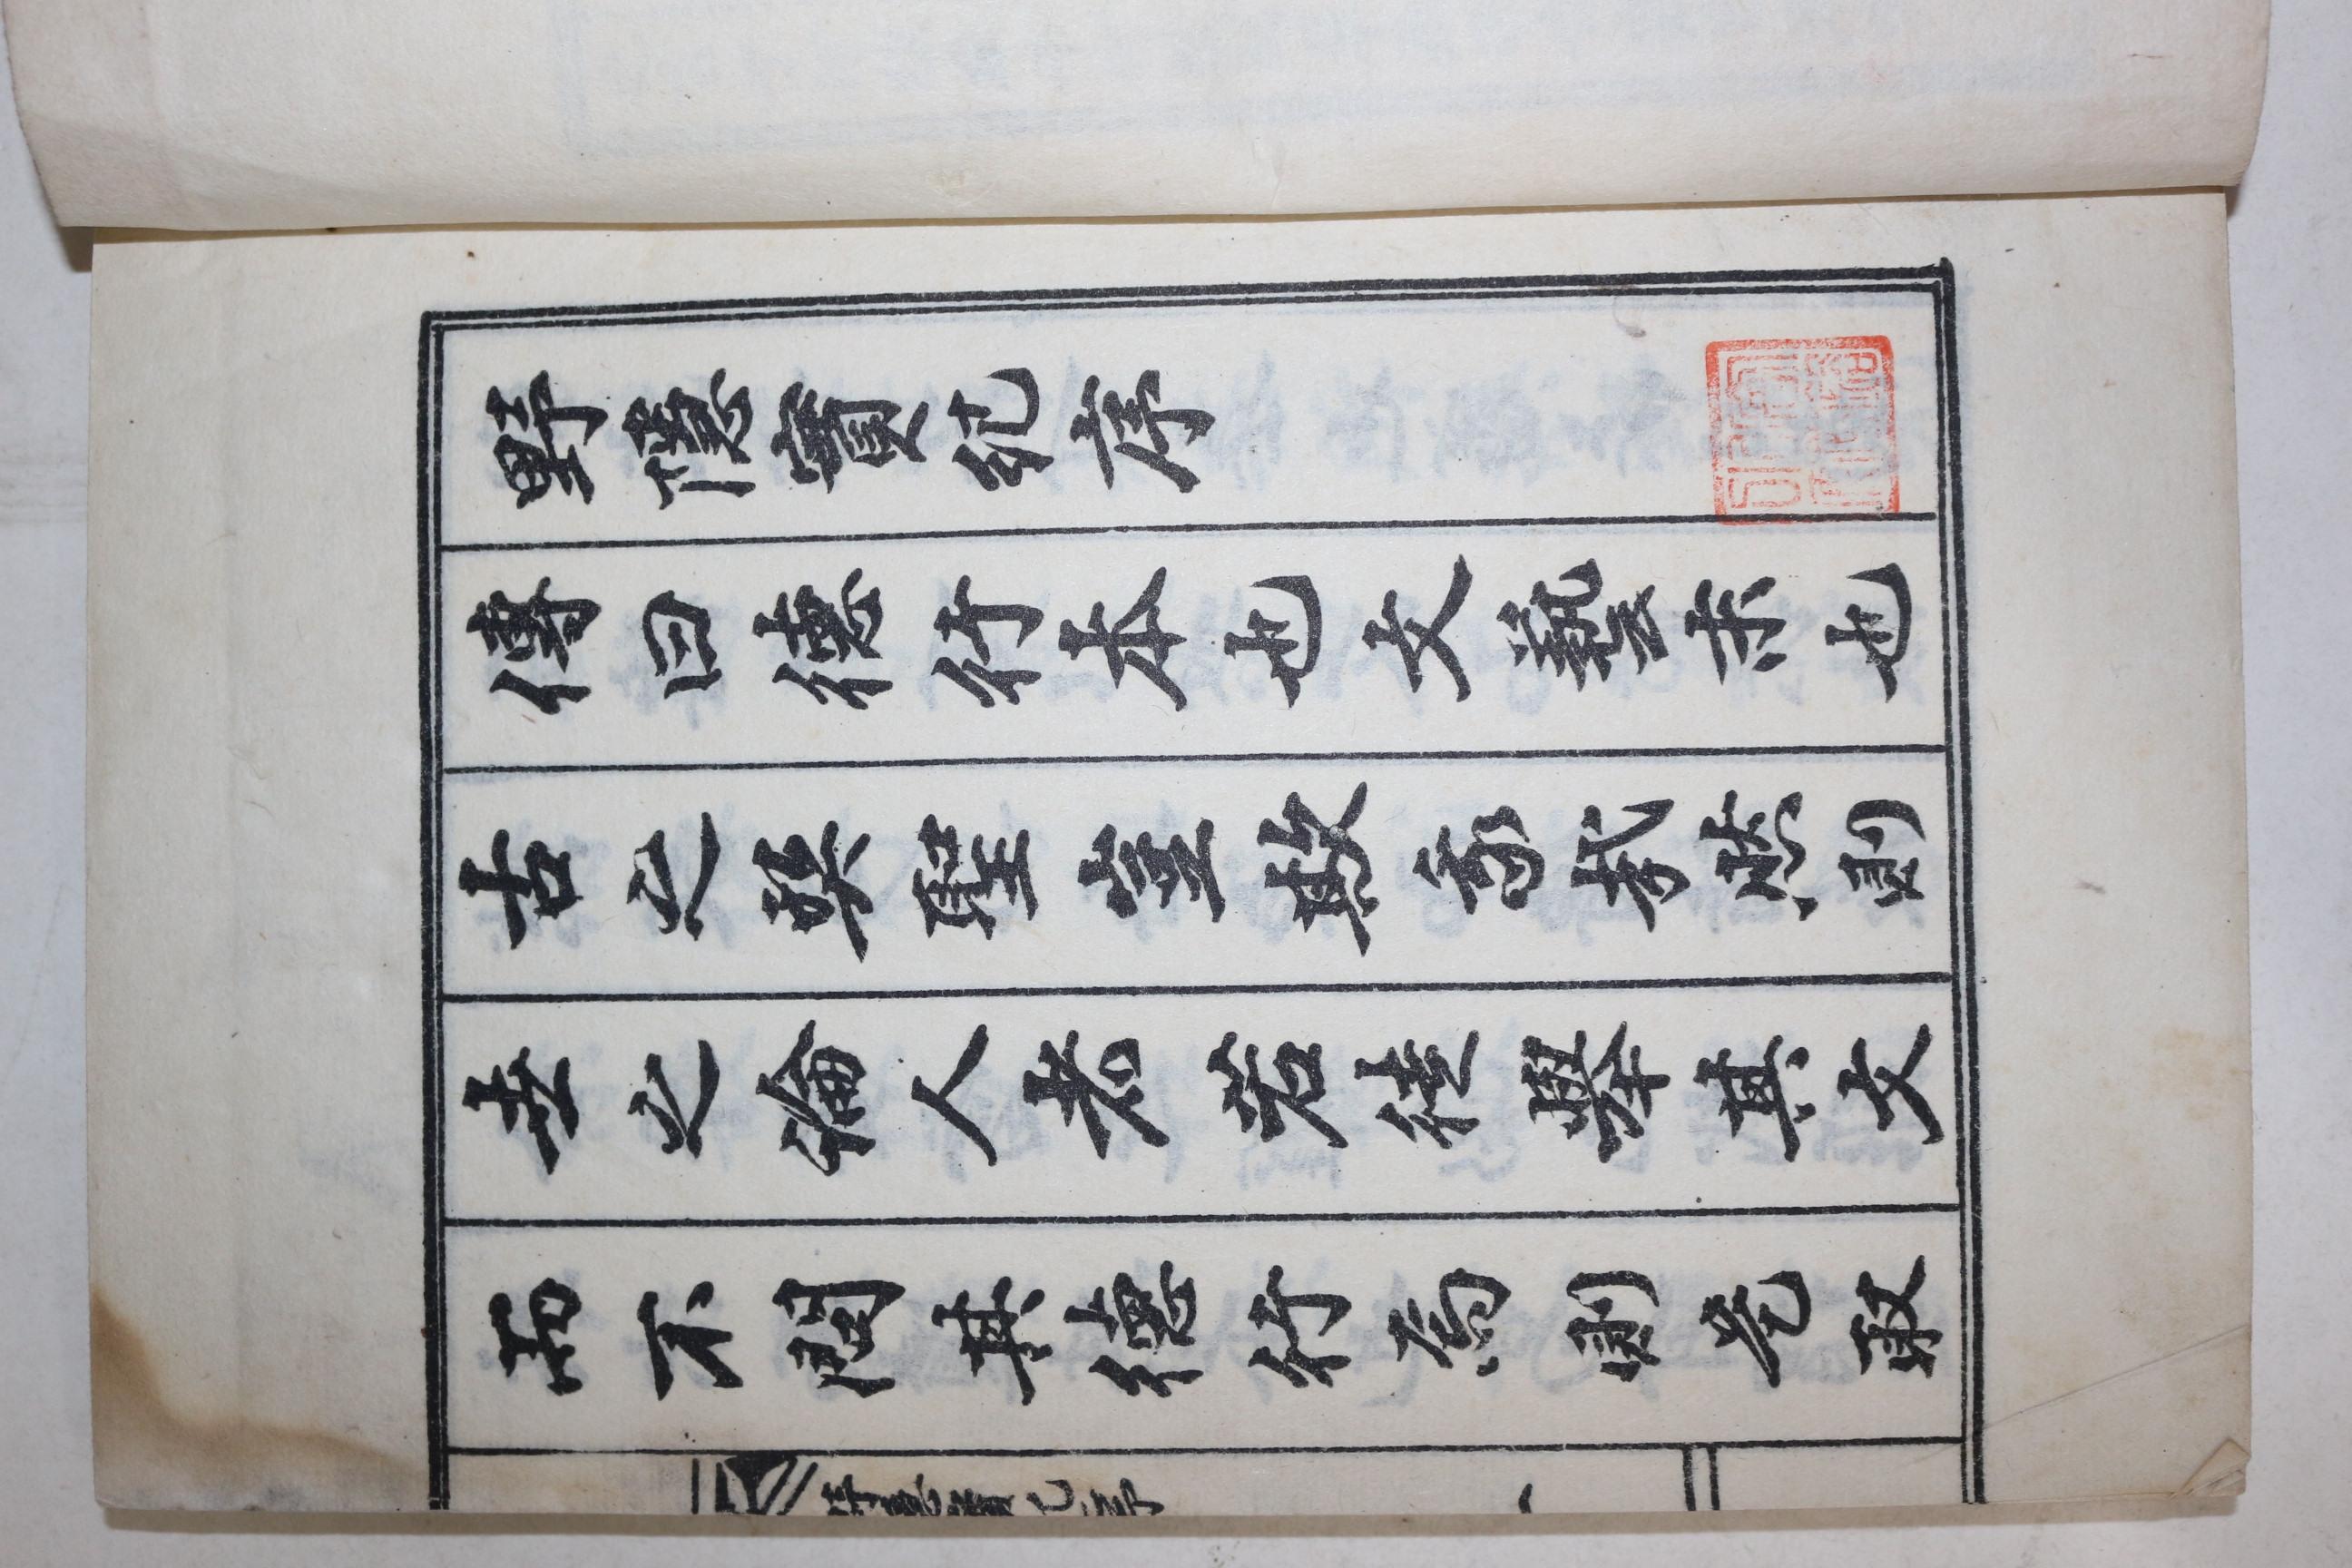 野隱實紀序
傳曰德行本也文藝末也
古之賢聖豈欺我哉然則
世之論人者若徒擧其文
而不問其德行焉則是取